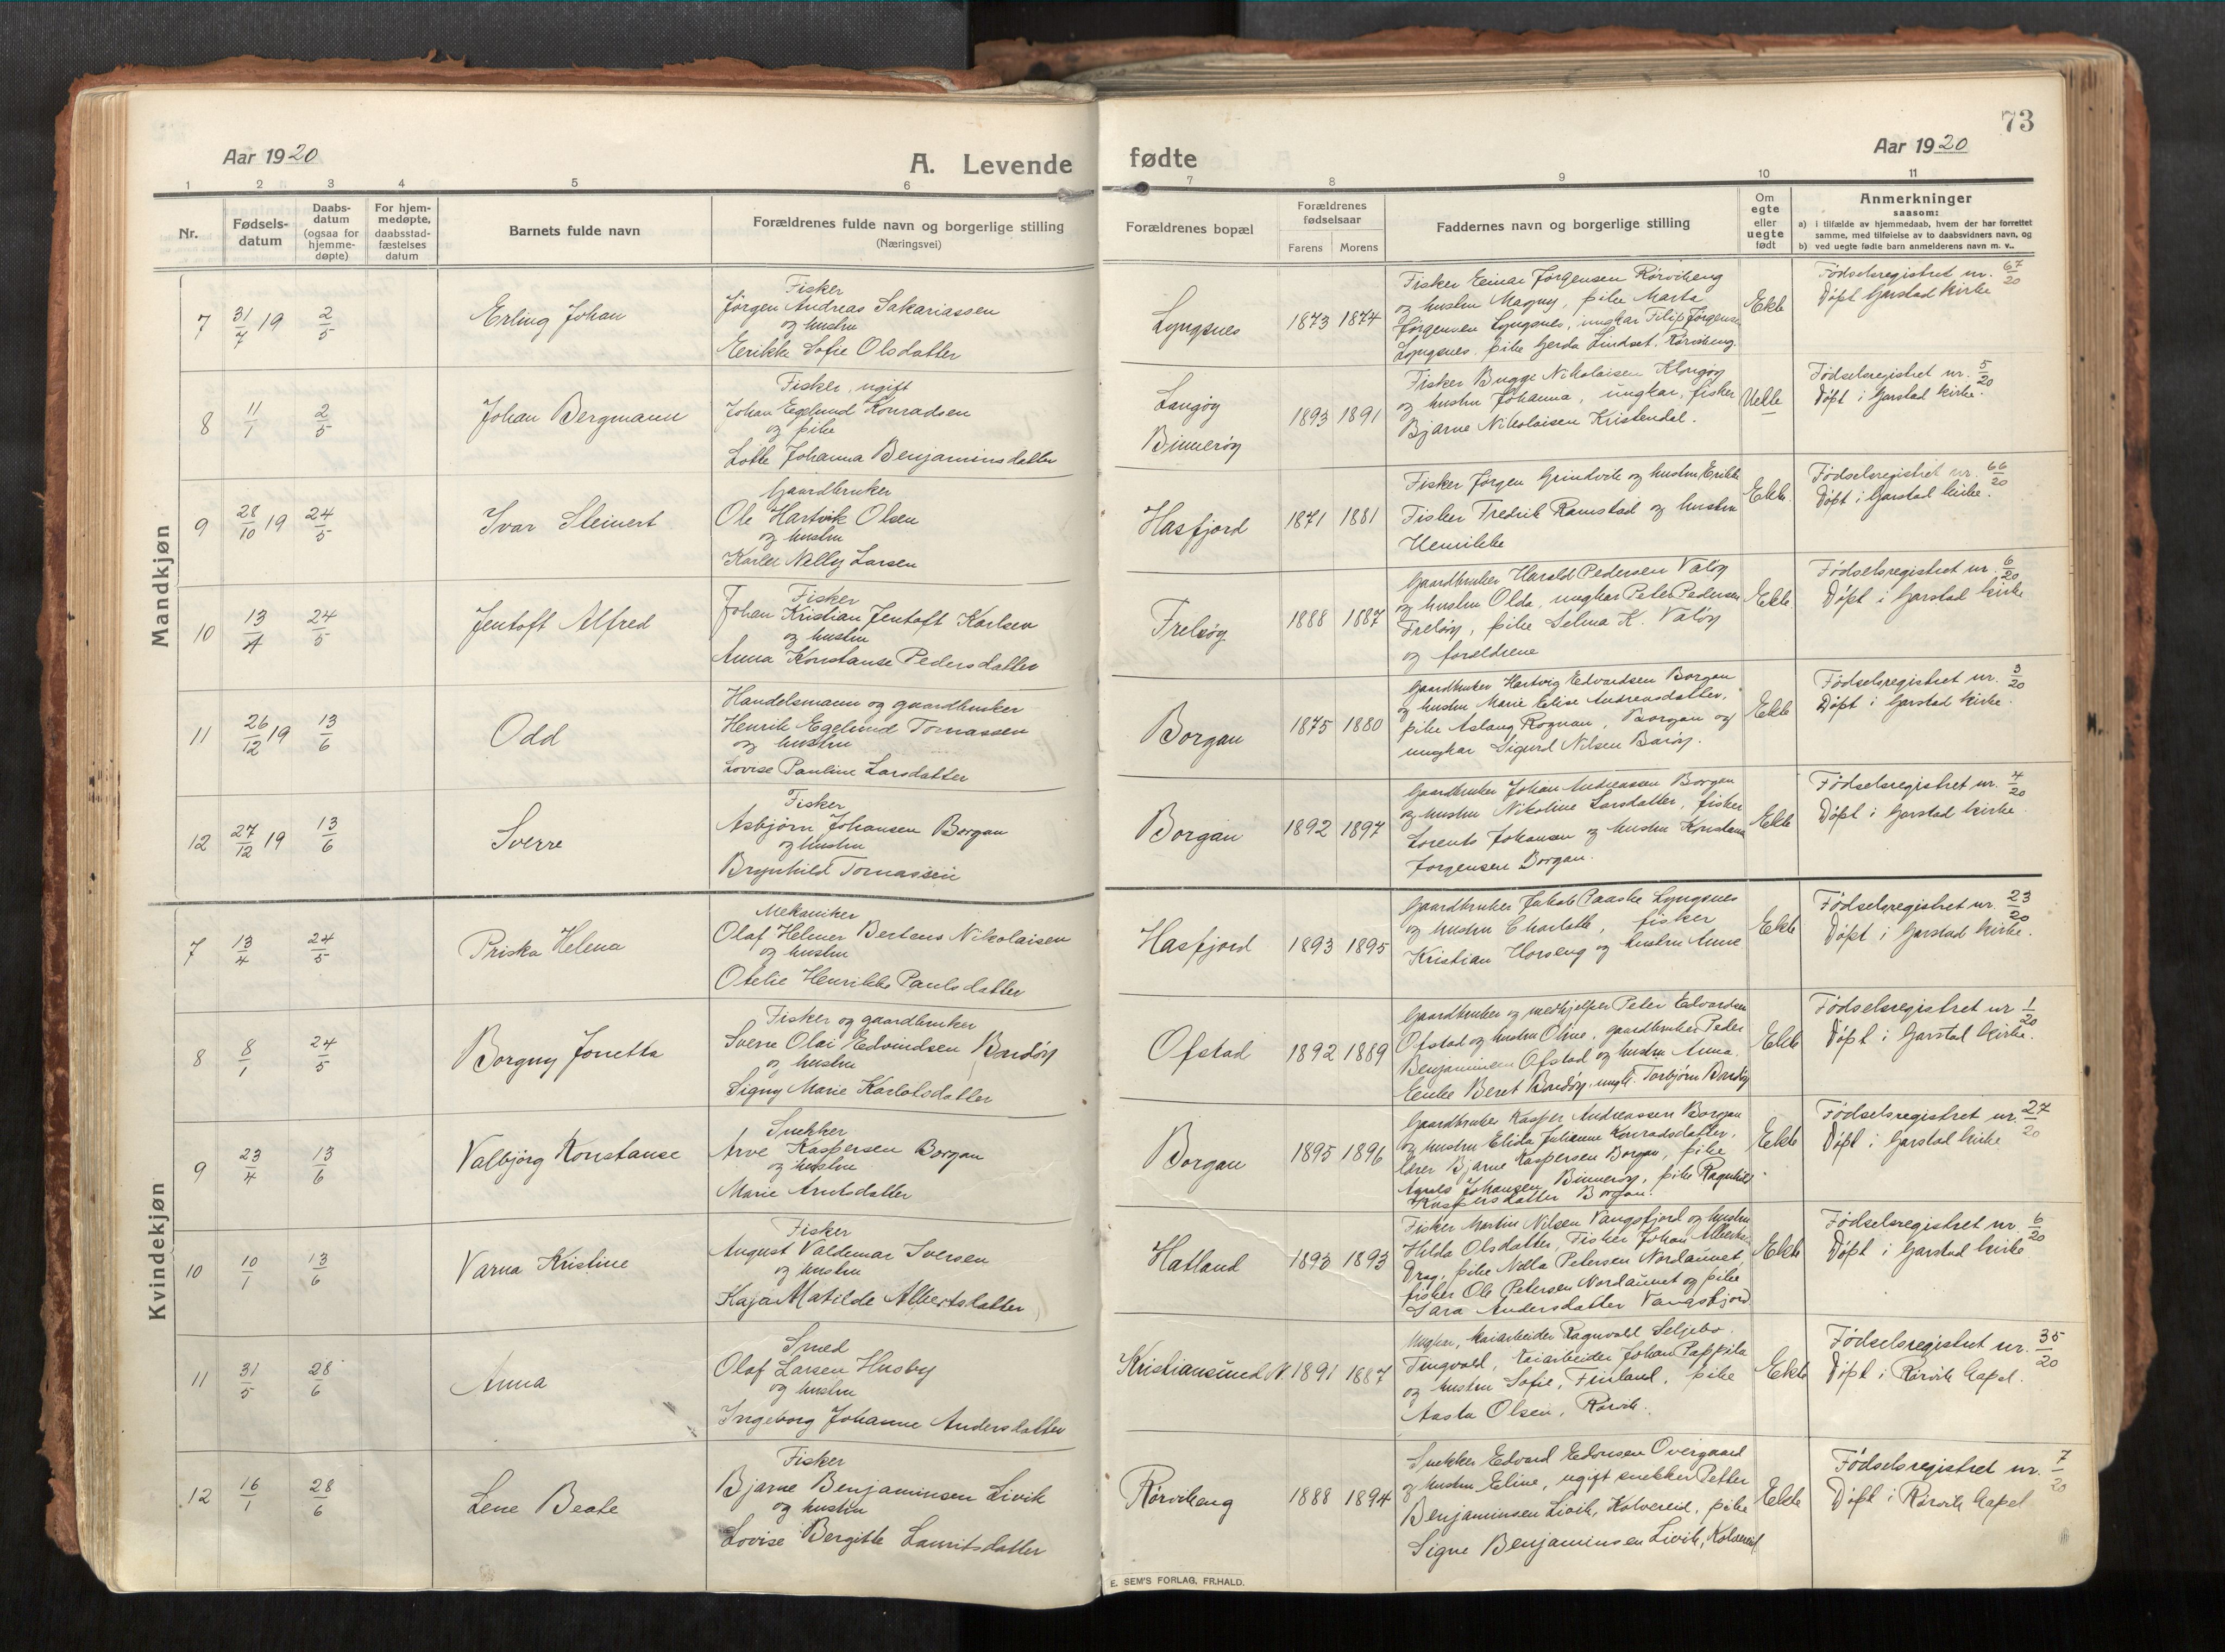 73
Aar 1920
A. Levende
fødte
Aar 1920
1 2 3 4 5 6 7 8 9 10 11
Nr.
Fødsels-
datum
Daabs-
datum
(ogsaa for
hjemme-
døpte)
For hjem-
medøpte,
daabsstad-
fæstelses
datum
Barnets fulde navn
Forældrenes fulde navn og borgerlige stilling
(Næringsvei)
Forældrenes bopæl
Forældrenes
fødselsaar
Farens Morens
Faddernes navn og borgerlige stilling
Om
egte
eller
uegte
født
Anmerkninger
saasom:
a) i tilfælde av hjemmedaab, hvem der har forrettet
samme, med tilføielse av to daabsvidners navn, og
b) ved uegte fødte barn anmelderens navn m. v..
Mandkjøn
7 31/7 19 2/5 Erling Johan
Fisker
Jørgen Andreas Sakariassen
og hustru
Eerikke Sofie Olsdatter
Lyngsnes 1873 1874
Fisker Einar Jørgensen Rørvikeng
og hustru Magny, pike Marta
Jørgensen Lyngsnes, ungkar Filip Jørgensen
Lyngsnes, pike Gerda Lindset, Rørvikeng.
Ekte
Fødselsregistret nr. 67/20
Døpt Garstad kirke
8 11/1 2/5 Johan Bergmann
Fisker, ugift
Johan Egelund Konradsen
og pike
Lotte Johanna Benjaminsdatter
Langøy
Binnerøy
1893 1891
Fisker Bugge Nikolaisen Klongøy
og hustru Johanna, ungkar, fisker
Bjarne Nikolaisen Kristendal.
Uekte
Fødselsregistret nr. 5/20
Døpt i Garstad kirke.
9 28/10 19 24/5 Ivar Steinert
Gaardbruker
Ole Hartvik Olsen
og hustru
Karle Nelly Larsen
Hasfjord 1871 1881
Fisker Jørgen Grindvik og hustru Erikke
Fisker Fredrik Ramstad og hustru
Henrikke
Ekte.
Fødselsregistret nr. 66/20
Døpt i Garstad kirke.
10 13/4 24/5 Jentoft Alfred
Fisker
Johan Kristian Jentoft Karlsen
og hustru
Anna Konstanse Pedersdatter
Frelsøy 1888 1887
Gaardbruker Harald Pedersen Valøy
og hustru Olda, ungkar Peter Pedersen
Frelsøy, pike Selma K. Valøy
og forældrene
Ekte.
Fødselsregistret nr. 6/20
Døpt i Garstad kirke
11 26/12 19 13/6 Odd
Handelsmann og gaardbruker
Henrik Egelund Tomassen
og hustru
Lovise Pauline Larsdatter
Borgan 1875 1880
Gaardbruker Hartvig Edvardsen Borgan
og hustru Marie Elise Andreasdatter,
pike Aslaug Rognan, Borgan og
ungkar Sigurd Nilsen Barøy.
Ekte
Fødselsregistret nr. 3/20
Døpt i Garstad kirke.
12 27/12 19 13/6 Sverre
Fisker
Asbjørn Johansen Borgan
og hustru
Brynhild Tomassen
Borgan 1892 1897
Gaardbruker Johan Andreassen Borgan
og hustru Nikoline Larsdatter, fisker
Lorents Johansen og hustru Konstanse
Jørgensen Borgan.
Ekte
Fødselsregistret nr. 4/20
Døpt i Garstad kirke
Kvindekjøn
7 13/4 24/5 Priska Helena
Mekaniker
Olaf Helmer Berteus Nikolaisen
og hustru
Otelie Henrikke Paulsdatter
Hasfjord 1893 1895
Gaardbruker Jakob Paaske Lyngsnes
og hustru Charlotte, fisker
Kristian Horseng og hustru Anne
Ekte
Fødselsregistret nr. 23/20
Døpt i Garstad kirke.
8 8/1 24/5 Borgny Jonetta
Fisker og gaardbruker
Sverre Olai Edvindsen Bondøy
og hustru
Signy Marie Karlotsdatter
Ofstad 1892 1889
Gaardbruker og medhjelper Peter Edvardsen
Ofstad og hustru Oline, gaardbruker Peder
Benjaminsen Ofstad og hustru Anna.
Enke Beret Bondøy, ungk. Torbjørn Bondøy
Ekte
Fødselsregistret nr 1/20
Døpt i Garstad kirke.
9 23/4 13/6 Valbjørg Konstanse
Snekker
Arve Kaspersen Borgan
og hustru
Marie Arntsdatter
Borgan 1895 1896
Gaardbruker Kasper Andreassen Borgan
og hustru Elida Julianne Konradsdatter,
lærer Bjarne Kaspersen Borgan, pike
Johansen Binnerøy, pike Ragnhild
Kaspersdatter Borgan.
Ekte
Fødselsregistret nr. 27/20
Døpt i Garstad kirke
10 10/1 13/6 Varna Kristine
Fisker
August Valdemar Iversen
og hustru
Kaja Matilde Albertsdatter
Hatland 1893 1893
Fisker Martin Nilsen Vangsfjord og hustru
Hilda Olsdatter, Fisker Johan Albertsen
Drag, pike Nella Petersen Nordaunet,
fisker Ole Petersen Nordaunet og pike
Sara Andersdatter Vangsfjord
Ekte
Fødselsregistret nr. 6/20
Døpt i Garstad kirke
11 31/5 28/6 Anna
Smed
Olaf Larsen Husby
og hustru
Ingeborg Johanne Andersdatter
Kristiansund N. 1891 1887
Ungkar, kaiarbeider Ragnvald Seljebo
Tingvold, kaiarbeider Johan Pappila
og hustru Sofie, Finland, pike
Aasta Olsen, Rørvik.
Ekte
Fødselsregistret nr. 35/20
Døpt i Rørvik Capel.
12 16/1 28/6 Lene Beate
Fisker
Bjarne Benjaminsen Livik
og hustru
Lovise Bergitte Lauritsdatter
Rørvikeng 1888 1894
Snekker Edvard Edvinsen Overgaard
og hustru Eline, ugift snekker Petter
Benjaminsen Livik, Kolvereid, pike
Signe Benjaminsen Livik, Kolvereid
Ekte
Fødselsregistret nr. 7/20
Døpt i Rørvik Capel
E. SEM'S FORLAG, FR.HALD.